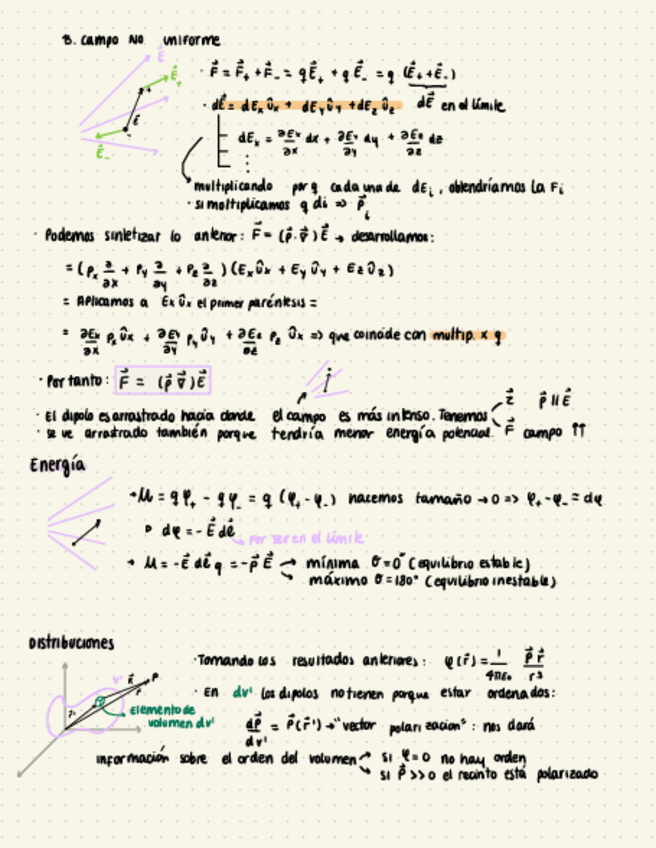 B. campo NO uniforme
E⃗
E⃗₊
+
ℓ⃗
-
E⃗₋
· F⃗ = F⃗₊ + F⃗₋ = qE⃗₊ + qE⃗₋ = q (E⃗₊ + E⃗₋)
· dE⃗ = dEₓûₓ + dE_yû_y + dE_zû_z dE⃗ en el límite
dEₓ = ∂Eₓ/∂x dx + ∂Eₓ/∂y dy + ∂Eₓ/∂z dz
⋮
multiplicando por q cada una de dEᵢ, obtendríamos la Fᵢ
· si moltiplicamos q di => P⃗ᵢ
· Podemos sintetizar lo anterior: F⃗ = (p⃗·∇⃗)E⃗ → desarrollamos:
= (pₓ ∂/∂x + p_y ∂/∂y + p_z ∂/∂z)(Eₓûₓ + E_yû_y + E_zû_z)
= Aplicamos a Eₓûₓ el primer paréntesis =
= ∂Eₓ/∂x pₓûₓ + ∂E_y/∂y p_yû_y + ∂E_z/∂z p_z ûₓ => que coincide con multip. x q
· Por tanto: F⃗ = (p⃗ ∇⃗)E⃗
· El dipolo es arrastrado hacia donde el campo es más intenso. Tenemos τ⃗ p⃗ || E⃗
· se ve arrastrado también porque tendría menor energía potencial. F⃗ campo ↑↑
Energía
→ U = qφ₊ - qφ₋ = q (φ₊ - φ₋) hacemos tamaño → 0 => φ₊ - φ₋ = dφ
dφ = - E⃗ dℓ⃗
→ por ser en el límite
→ U = -E⃗ dℓ⃗ q = -p⃗ E⃗ → mínima θ=0° (equilibrio estable)
→ máximo θ=180° (equilibrio inestable)
Distribuciones
V'
R⃗
P
r⃗
r⃗'
Elemento de
volumen dv'
· Tomando los resultados anteriores: φ(r⃗) = 1/4πε₀ P⃗ r⃗/r³
· En dv' los dipolos no tienen porque estar ordenados:
dP⃗/dv' = P⃗(r⃗') → "vector polarizacion": nos dará
información sobre el orden del volumen → si φ=0 no hay orden
→ si P⃗ >>0 el recinto está polarizado